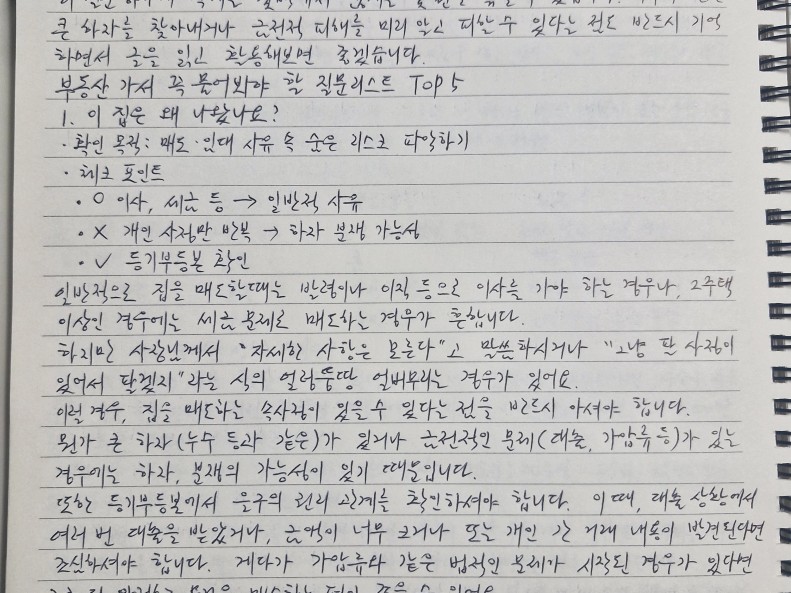 큰 하자를 찾아내거나 금전적 피해를 미리 알고 피할 수 있다는 점도 반드시 기억
하면서 글을 읽고 활용해보면 좋겠습니다.
부동산 가서 꼭 물어봐야 할 질문리스트 TOP 5
1. 이 집은 왜 나왔나요?
· 확인 목적: 매도·임대 사유 속 숨은 리스크 파악하기
· 체크 포인트
· O 이사, 세금 등 → 일반적 사유
· X 개인 사정만 반복 → 하자 분쟁 가능성
· ✓ 등기부등본 확인
일반적으로 집을 매도할때는 발령이나 이직 등으로 이사를 가야 하는 경우나, 2주택
이상인 경우에는 세금 문제로 매도하는 경우가 흔합니다.
하지만 사장님께서 "자세한 사항은 모른다"고 말씀하시거나 "그냥 판 사정이
있어서 팔겠지"라는 식의 얼렁뚱땅 얼버무리는 경우가 있어요.
이럴 경우, 집을 매도하는 속사정이 있을 수 있다는 점을 반드시 아셔야 합니다.
뭔가 큰 하자(누수 등과 같은)가 있거나 금전적인 문제(대출, 가압류 등)가 있는
경우에는 하자, 분쟁의 가능성이 있기 때문입니다.
또한 등기부등본에서 을구의 권리 관계를 확인하셔야 합니다. 이 때, 대출 상황에서
여러 번 대출을 받았거나, 금액이 너무 크거나 또는 개인 간 거래 내용이 발견된다면
조심하셔야 합니다. 게다가 가압류와 같은 법적인 문제가 시작된 경우가 있다면